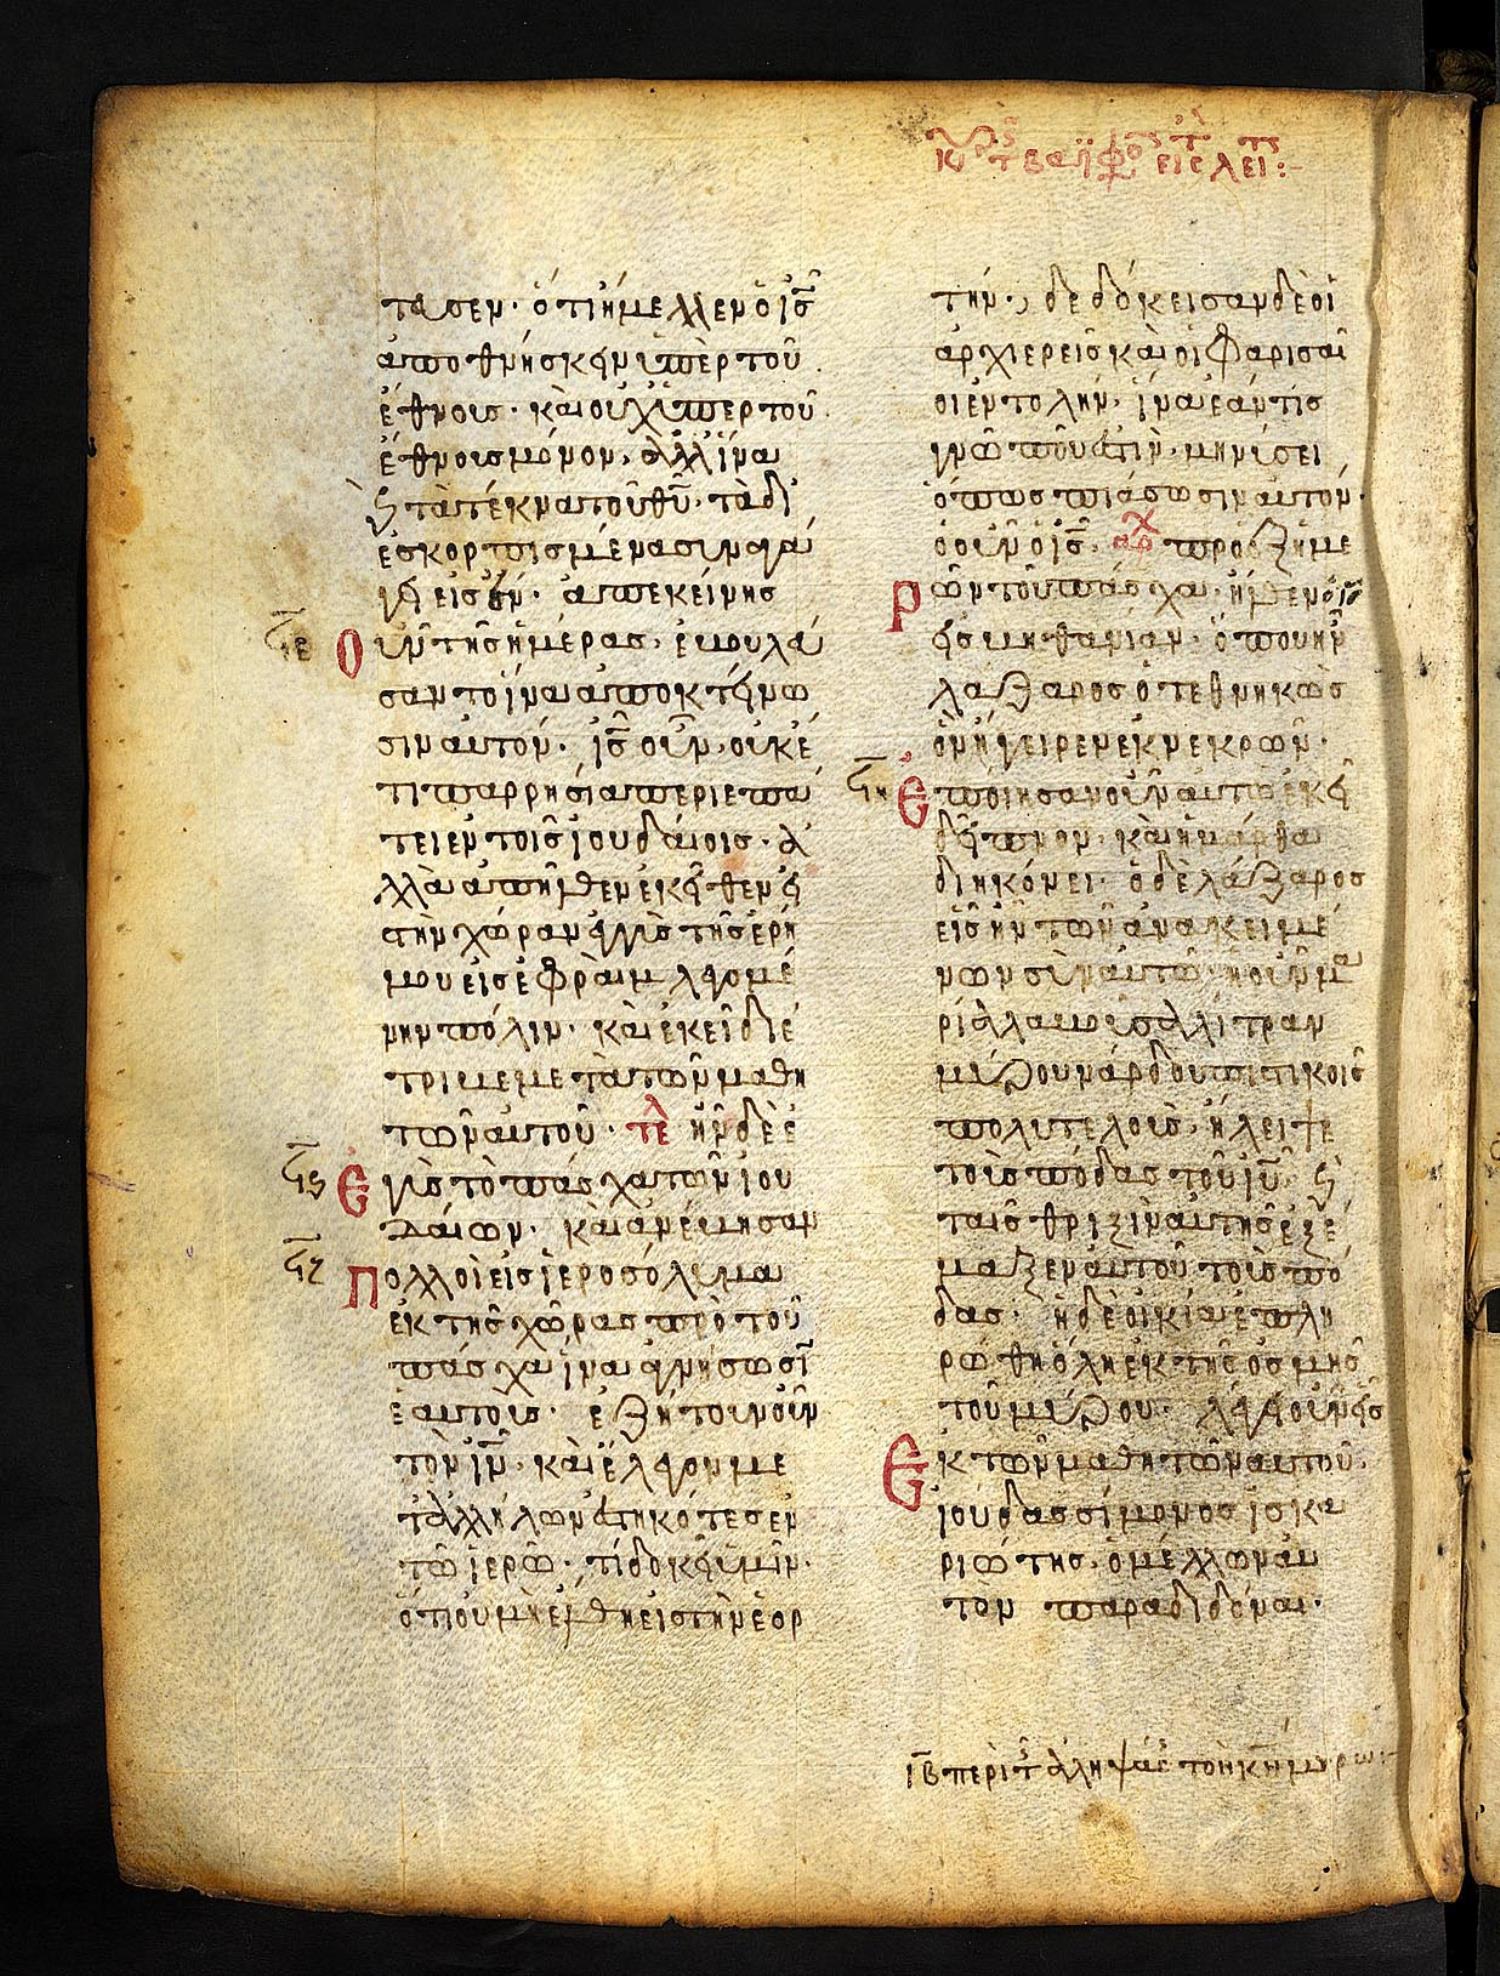 τευσεν· ὅτι ἤμελλεν ὁ ις̅
ἀποθνήσκειν ὑπὲρ τοῦ
ἔθνους· καὶ οὐχ ὑπὲρ τοῦ
ἔθνους μόνον, ἀλλ' ἵνα
ϗ τὰ τέκνα τοῦ θυ̅· τὰ δι
εσκορπισμένα συναγά
γη εἰς ἕν· ἀπ' ἐκείνης
οὖν τῆς ἡμέρας, ἐβουλεύ
σαντο ἵνα ἀποκτείνω
σιν αὐτόν· ις̅ οὖν, οὐκέ
τι παρρησία περιεπά
τει ἐν τοῖς ἰουδαίοις· ἀ
λλὰ ἀπῆλθεν ἐκεῖθεν εἰς
τὴν χώραν ἐγγὺς τῆς ἐρή
μου εἰς ἐφραὶμ λεγομέ
νην πόλιν· καὶ ἐκεῖ διέ
τριβε μετὰ τῶν μαθη
τῶν αὐτοῦ· τε̅λ ἦν δὲ ἐ
Εγγὺς τὸ πάσχα τῶν ἰου
δαίων· καὶ ἀνέβησαν
Πολλοὶ εἰς ἱεροσόλυμα
ἐκ τῆς χώρας πρὸ τοῦ
πάσχα ἵνα ἁγνήσωσι̅
ἑαυτούς· ἐζήτουν οὖν
τὸν ιν̅· καὶ ἔλεγον με
τ' ἀλλήλων ἑστηκότες ἐν
τῶ ἱερῶ· τί δοκεῖ ὑμῖν·
ὅτι οὐ μὴ ἔλθη εἰς τὴν ἑορ
τήν·, δεδώκεισαν δὲ οἱ
ἀρχιερεῖς καὶ οἱ φαρισαῖ
οι ἐντολήν· ἵνα ἐάν τις
γνῶ ποῦ ἐστιν· μηνύσει
ὅπως πιάσωσιν αὐτόν·
ὁ οὖν ὁ ις̅· αρχ πρὸ ἓξ ἡμε
ρῶν τοῦ πάσχα· ἦλθεν
εἰς βηθανίαν· ὅπου ἦν
λάζαρος ὁ τεθνηκὼς
ὃν ἤγειρεν ἐκ νεκρῶν·
Ἐποίησαν οὖν αὐτῶ ἐκεῖ
δεῖπνον· καὶ ἡ μάρθα
διηκόνει· ὁ δὲ λάζαρος
εἷς ἦν τῶν ἀνακειμέ
νων σὺν αὐτῶ· ἡ οὖν μα
ρία λαβοῦσα λίτραν
μύρου νάρδου πιστικοῖς
πολυτελοῦς· ἤλειψε
τοὺς πόδας τοῦ ιυ̅· ϗ
ταῖς θριξὶν αὐτῆς ἐξέ
μαξεν αὐτοῦ τοὺς πό
δας· ἡ δὲ οἰκία ἐπλη
ρώθη ὅλη ἐκ τῆς ὀσμῆς
τοῦ μύρου· λέγει οὖν εἷς
Ἐκ τῶν μαθητῶν αὐτοῦ·
ἰούδας σίμονος ἰσκα
ριώτης· ὁ μέλλων αὐ
τὸν παραδιδόναι·